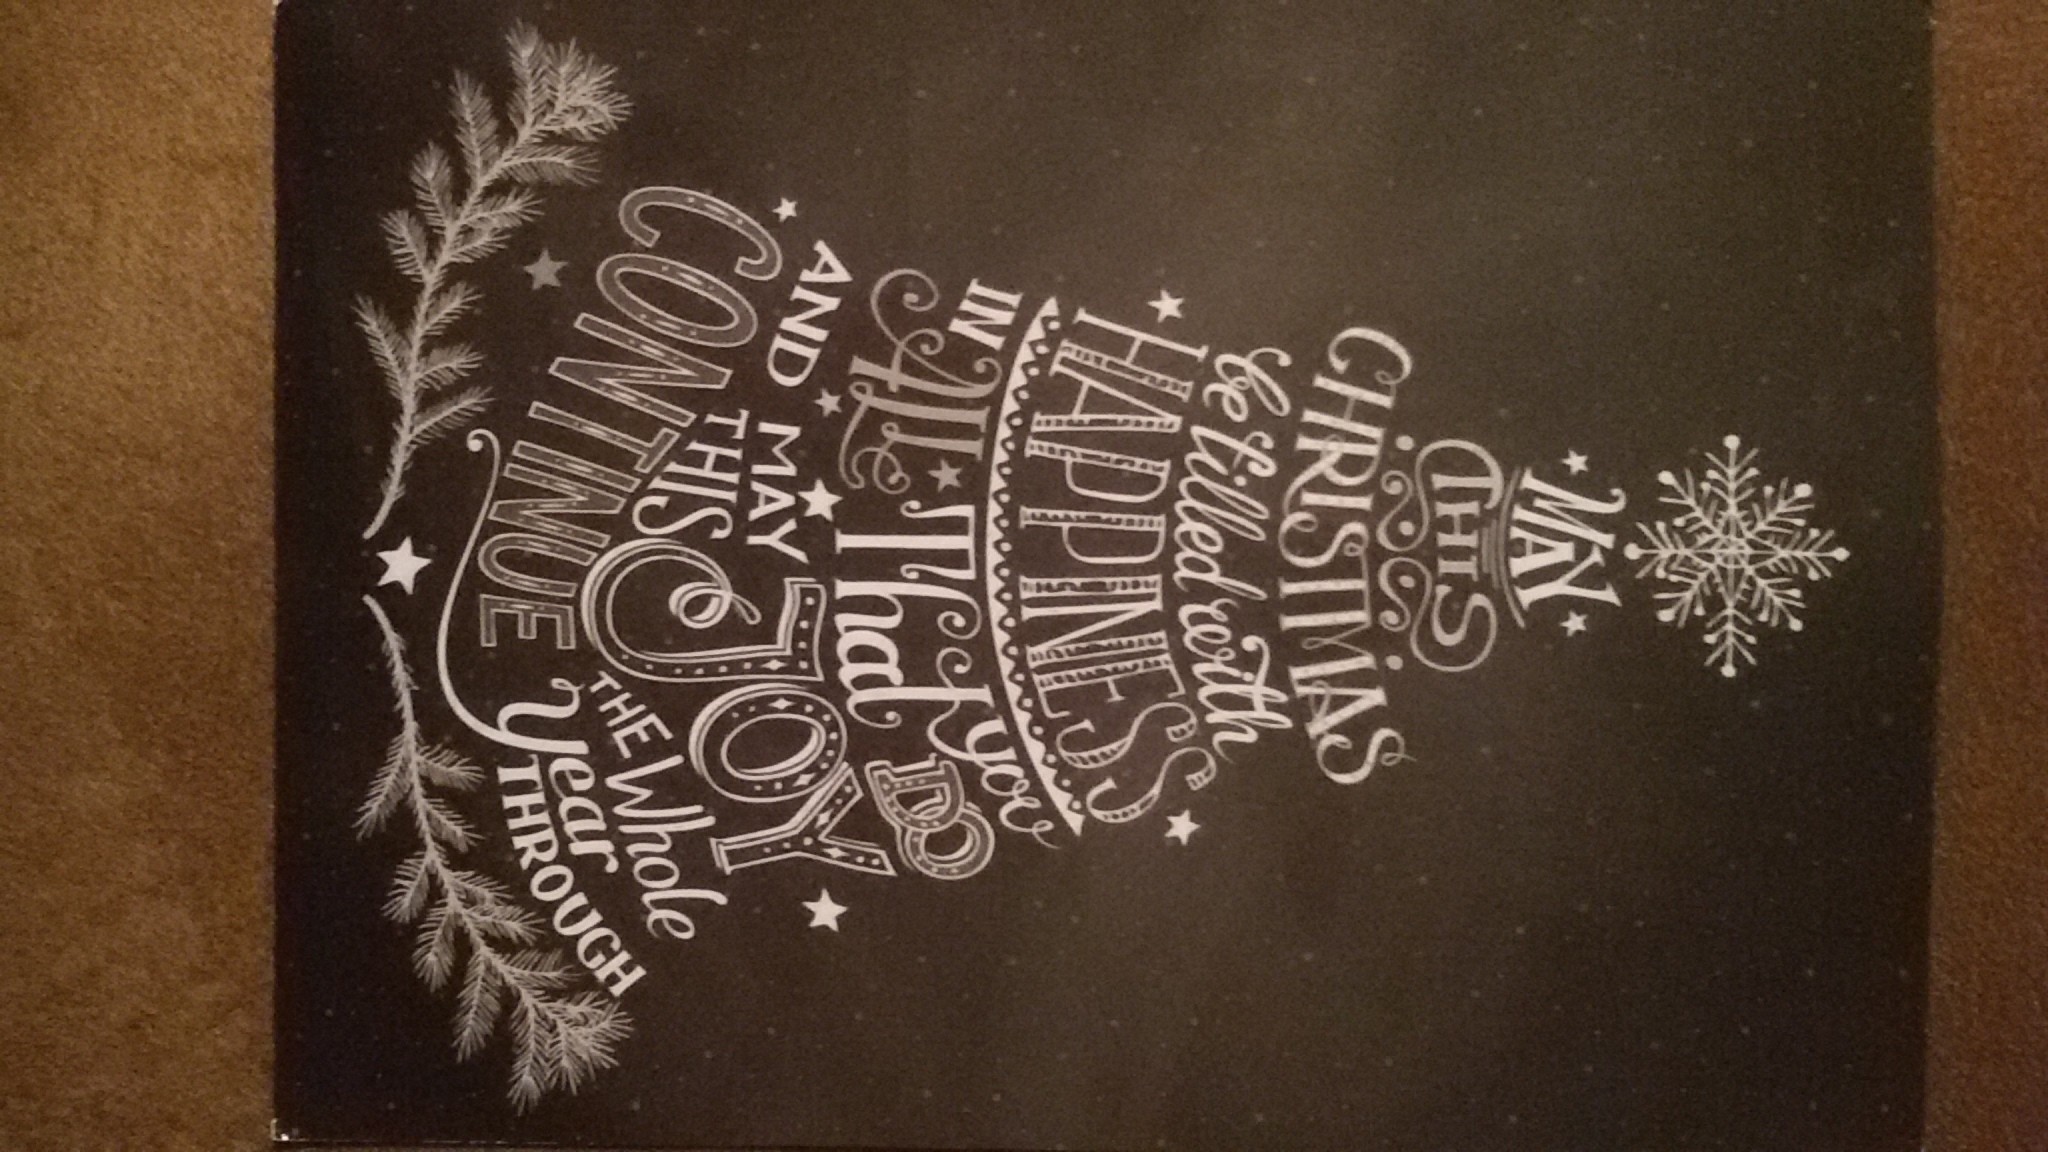 MAY
THIS
CHRISTMAS
be filled with
HAPPINESS
IN All That you
That DO
AND MAY
THIS JOY
CONTINUE
THE Whole
Year
THROUGH